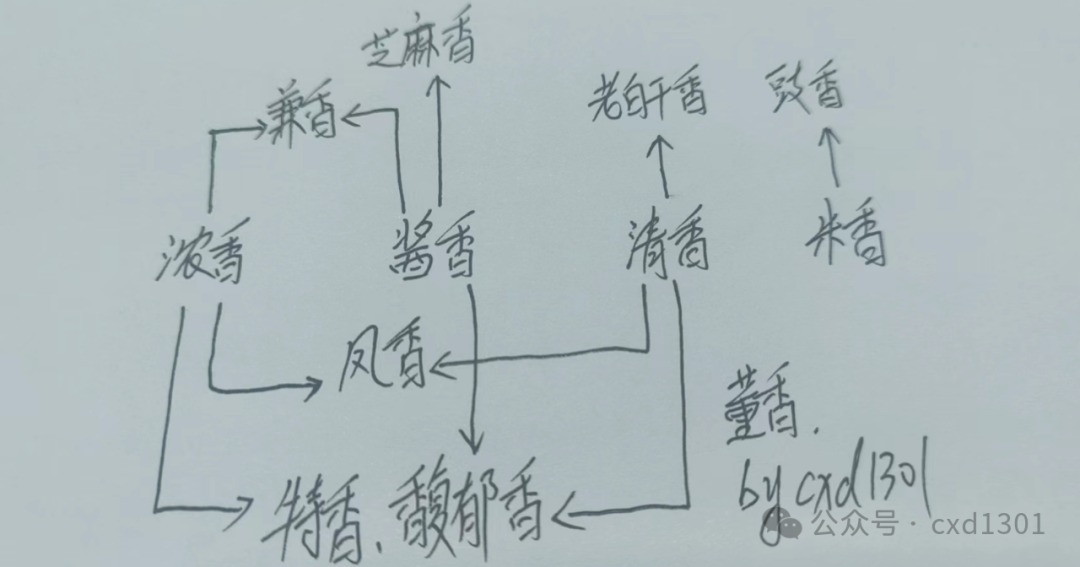 芝麻香
兼香
老白干香
豉香
浓香
酱香
清香
米香
凤香
董香.
特香、馥郁香
by cxd1301
公众号·cxd1301